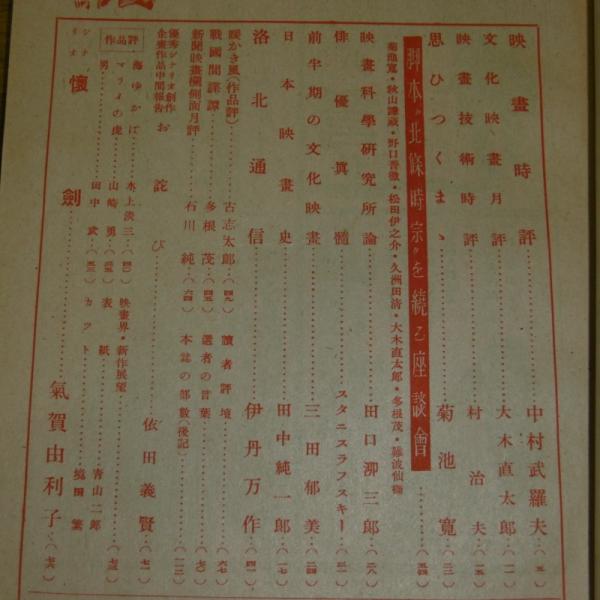 映畫時評 中村武羅夫
文化映畫月評 大木直太郎
映畫技術時評 村治夫
思ひつくまゝ 菊池寬
脚本『北條時宗』を繞る座談會
菊池寬・秋山謙藏・野口・松田伊之介・久洲田淸・大木直太郎・多根茂・難波仙
映畫科學硏究所論 田口泖三郎
俳優眞髓 スタニスラフスキー
前半期の文化映畫 三田郁美
日本映畫史 田中純一郎
洛北通信 伊丹万作
暖かき風(作品評) 古志太郎
戰國閒諜譚 多根茂
新聞映畫欄側面月評 石川純
讀者評壇
選者の言葉
本誌の部數(後記)
優秀シナリオ創作
企畫作品中間報告 お詫び 依田義賢
作品評
海ゆかば 水上淡三
マライの虎 山崎勇
男 田中武
映畫界・新作展望
表紙 靑山二郎
カツト 繁
シナリオ 懷劍 氣賀由利子